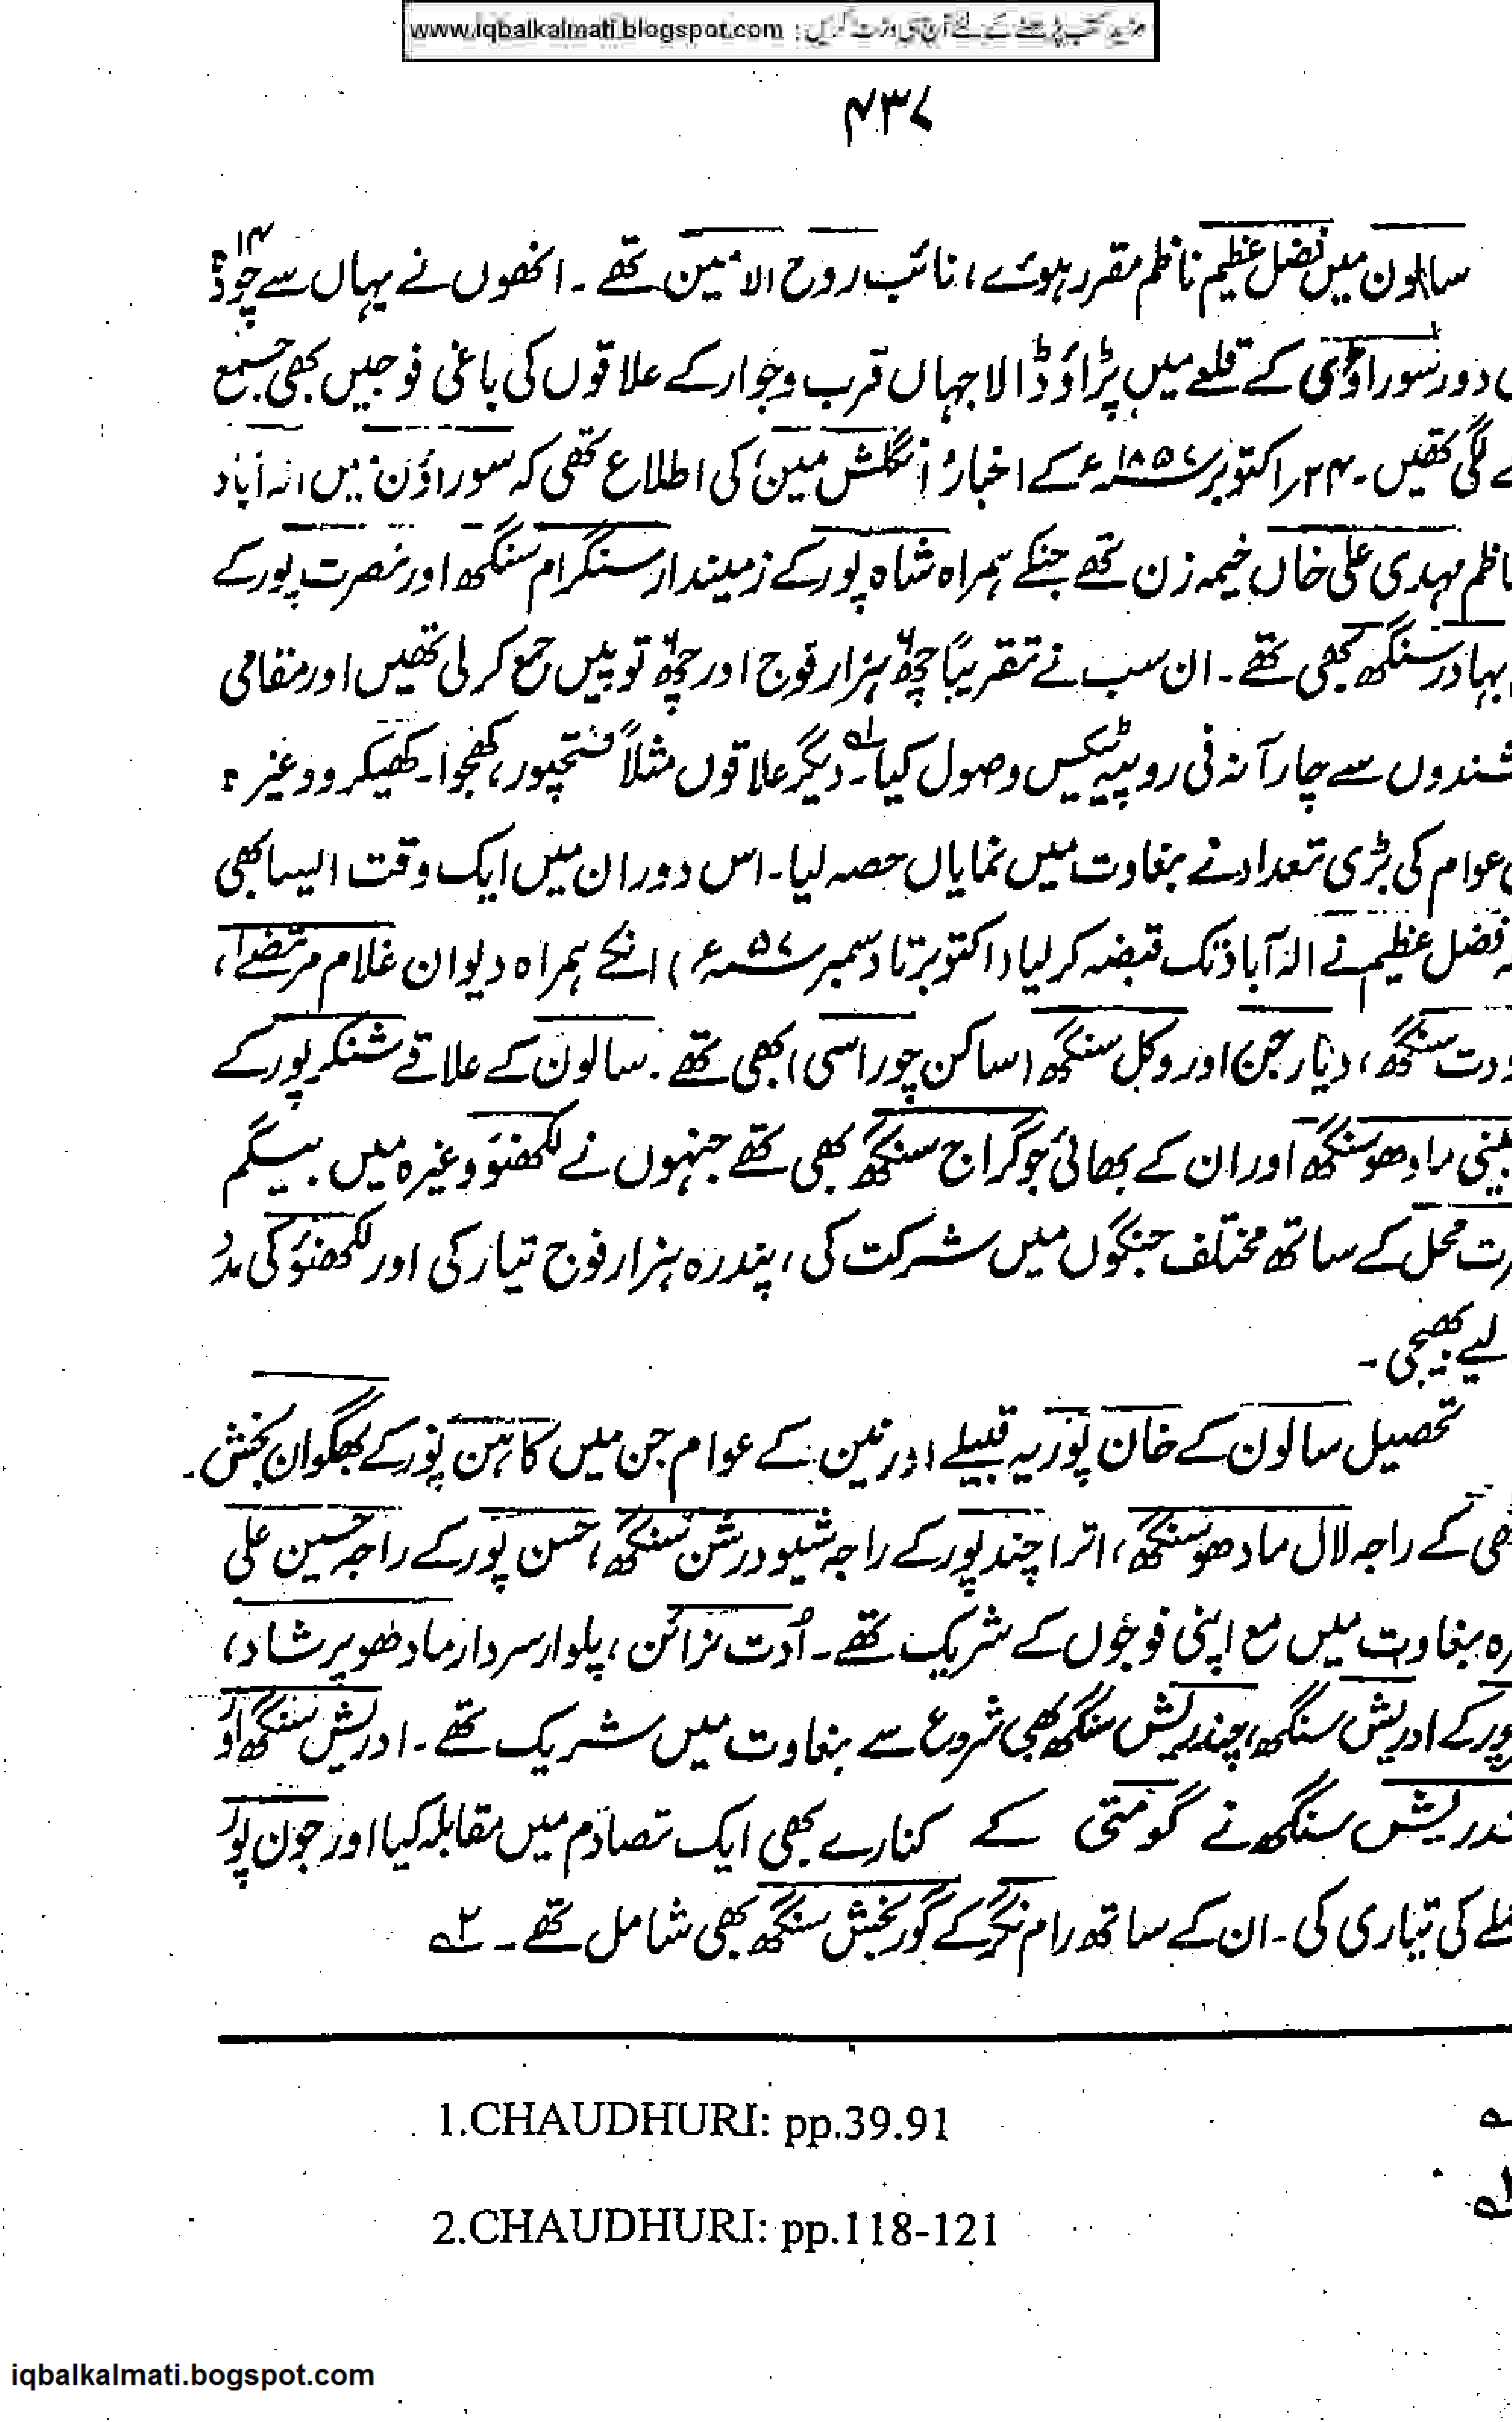 www.iqbalkalmati.blogspot.com : مزید کتب پڑھنے کے لئے آج ہی وزٹ کریں
۴۳۷
سالون میں فضل عظیم ناظم مقرر ہوئے، نائب روح الامین تھے ۔ انھوں نے یہاں سے چودہ ۱۴
دور سوراؤں کے قلعے میں پڑاؤ ڈالا جہاں قرب و جوار کے علاقوں کی باغی فوجیں بھی جمع
لگی تھیں ۔ ۲۴ر اکتوبر ۱۸۵۷ء کے اخبار انگلش مین کی اطلاع تھی کہ سوراؤن میں الہ آباد
ناظم مہدی علی خاں خیمہ زن تھے جنکے ہمراہ شاہ پور کے زمیندار سنگرام سنگھ اور نصرت پور کے
بہادر سنگھ بھی تھے ۔ ان سب نے تقریباً چھ ہزار فوج اور چھ توپیں جمع کر لی تھیں اور مقامی
شندوں سے چار آنہ فی روپیہ ٹیکس وصول کیا ۔ ۱ دیگر علاقوں مثلاً فتحپور، کھجوا ۔ کھیکر و وغیرہ
عوام کی بڑی تعداد نے بغاوت میں نمایاں حصہ لیا ۔ اس دوران میں ایک وقت ایسا بھی
فضل عظیم نے الہ آباد تک قبضہ کر لیا (اکتوبر تا دسمبر ۵۷ء) انکے ہمراہ دیوان غلام مرتضے،
دت سنگھ، دیارجن اور وکل سنگھ (ساکن چوراسی) بھی تھے ۔ سالون کے علاقے شنکر پور کے
بینی مادھو سنگھ اور ان کے بھائی جوگراج سنگھ بھی تھے جنہوں نے لکھنؤ وغیرہ میں بیگم
رت محل کے ساتھ مختلف جنگوں میں شرکت کی، پندرہ ہزار فوج تیار کی اور لکھنؤ کی مدد
لیے بھیجی ۔
تحصیل سالون کے خان پوریہ قبیلے اور نین کے عوام جن میں کاہن پور کے بھگوان بخش ۔
ٹھی کے راجہ لال مادھو سنگھ، اترا چند پور کے راجہ شیو درشن سنگھ، حسن پور کے راجہ حسین علی
رہ بغاوت میں مع اپنی فوجوں کے شریک تھے ۔ اُدت نرائن، پلوار سردار مادھو پرشاد،
پور کے ادریش سنگھ، چندریش سنگھ بھی شروع سے بغاوت میں شریک تھے ۔ ادریش سنگھ اور
ندریش سنگھ نے گومتی کے کنارے بھی ایک تصادم میں مقابلہ کیا اور جون پور
ملے کی تیاری کی ۔ ان کے ساتھ رام نگر کے گور بخش سنگھ بھی شامل تھے ۔ ۲
1.CHAUDHURI: pp.39.91
2.CHAUDHURI: pp.118-121
iqbalkalmati.bogspot.com